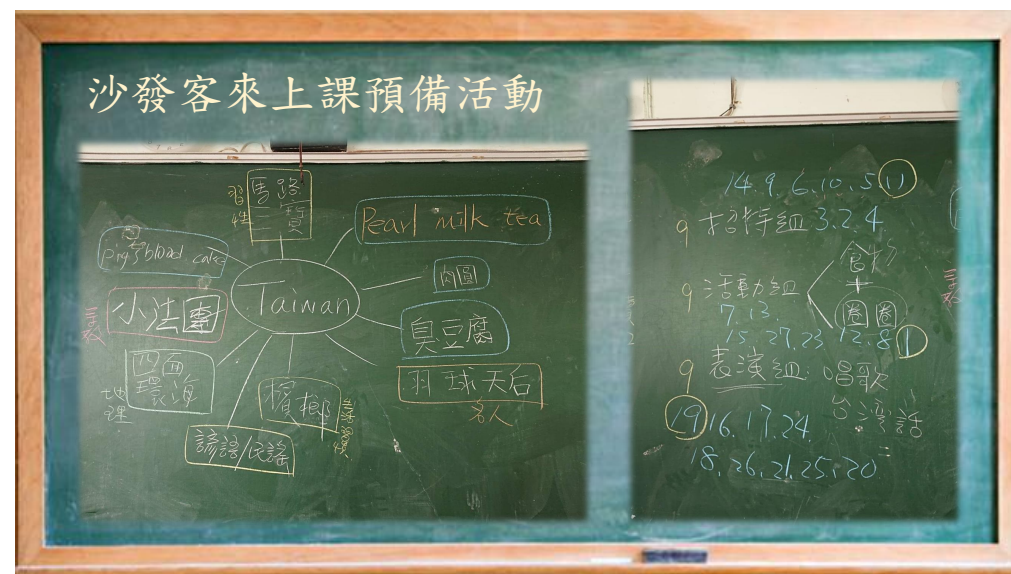 沙發客來上課預備活動
習性
馬路三寶
Pearl milk tea
Pig's blood cake
肉圓
小法國
Taiwan
臭豆腐
四面環海
地理
檳榔
羽球天后
名人
諺語/民謠
14.9.6.10.5.11
9 招待組 3.2.4
食物
+
9 活動組
圈圈
7.13.
15.27.23 12.8.1
9 表演組:唱歌
19 16.17.24.
台灣話
18.26.21.25.20